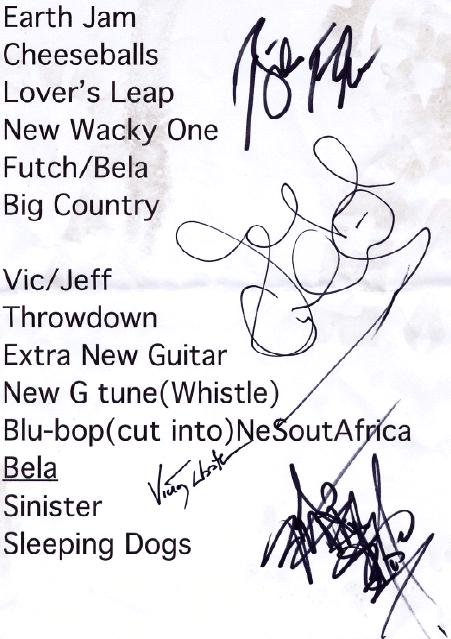 Earth Jam
Cheeseballs
Lover's Leap
New Wacky One
Futch/Bela
Big Country
Vic/Jeff
Throwdown
Extra New Guitar
New G tune(Whistle)
Blu-bop(cut into)NeSoutAfrica
Bela
Victor Wooten
Sinister
Sleeping Dogs